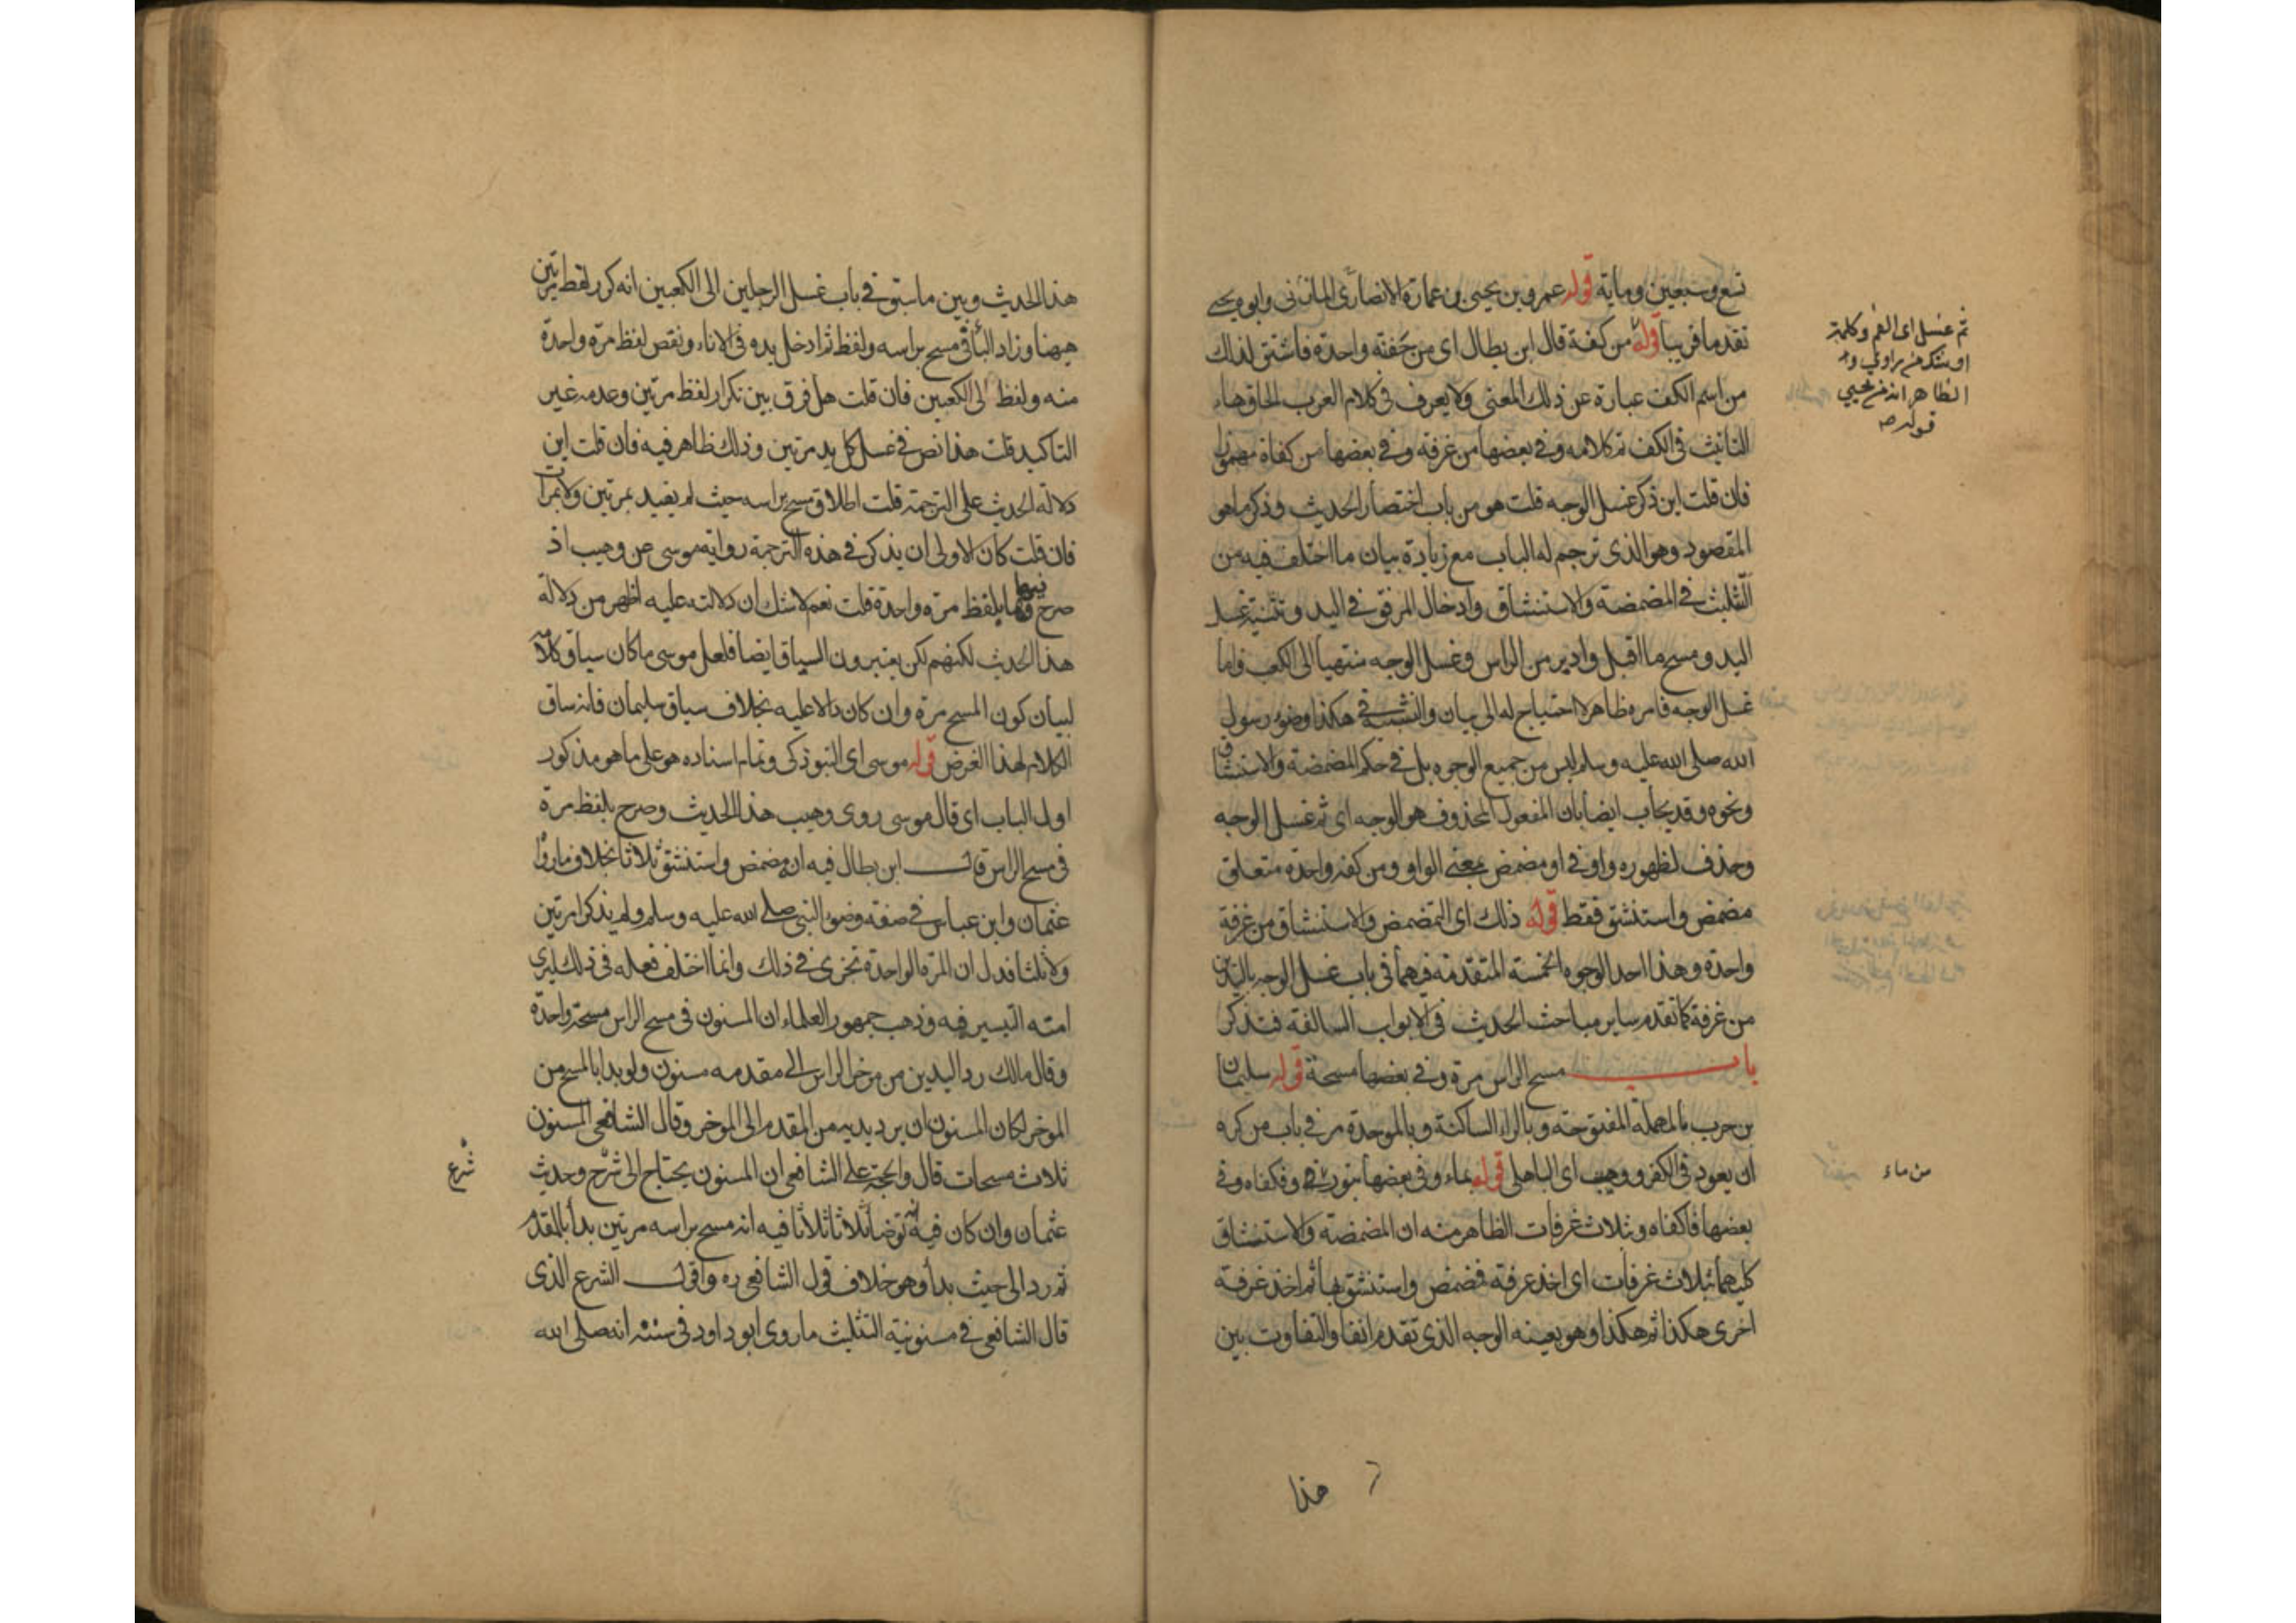 تسع وسبعين وماية قوله عمرو بن يحيى بن عمارة الانصارى المازنى وابوه يحيى
تقدما قريبا قوله من كفة قال ابن بطال اى من حفنة واحدة فاشتق لذلك
من اسم الكف عبارة عن ذلك المعنى ولا يعرف فى كلام العرب الحاق هاء
التانيث فى الكف تم كلامه وفى بعضها من غرفة وفى بعضها من كفاة
فان قلت اين ذكر غسل الوجه قلت هو من باب اختصار الحديث وذكر ما هو
المقصود وهو الذى ترجم له الباب مع زيادة بيان ما اختلف فيه من
التثليث فى المضمضة والاستنشاق وادخال المرفق فى اليد وتثنية غسل
اليد ومسح ما اقبل وادبر من الراس وغسل الوجه منتهيا الى الكعب واما
غسل الوجه فامره ظاهر لا احتياج له الى بيان والتشبيه فى هكذا وضوء رسول
الله صلى الله عليه وسلم ليس من جميع الوجوه بل فى حكم المضمضة والاستنشاق
ونحوه وقد يجاب ايضا بان المفعول المحذوف هو الوجه اى ثم غسل الوجه
وحذف لظهوره واو فى او مضمض بمعنى الواو ومن كفة واحدة متعلق
مضمض واستنشق فقط قوله ذلك اى التمضمض والاستنشاق من غرفة
واحدة وهذا احد الوجوه الخمسة المتقدمة فيهما فى باب غسل الوجه باليدين
من غرفة كما تقدم ساير مباحث الحديث فى الابواب السالفة فتذكر
باب مسح الراس مرة وفى بعضها مسحة قوله سليمان
بن حرب بالمهملة المفتوحة وبالراء الساكنة وبالموحدة مر فى باب من كره
ان يعود فى الكفر ووهيب اى الباهلى قوله بماء وفى بعضها بتور فكفاه وفى
بعضها فاكفاه وبثلاث غرفات الظاهر منه ان المضمضة والاستنشاق
كليهما بثلاث غرفات اى اخذ غرفة فمضمض واستنشق بها ثم اخذ غرفة
اخرى هكذا ثم هكذا وهو بعينه الوجه الذى تقدم انفا والتفاوت بين
ثم غسل اى الفم وكلمة
او شك من راوى
الظاهر انه من يحيى
قوله
من ماء
هذا
هذا الحديث وبين ما سبق فى باب غسل الرجلين الى الكعبين انه كرر لفظ مرتين
ههنا وزاد الباء فى مسح براسه ولفظ ثم ادخل يده فى الاناء ونقص لفظ مرة واحدة
منه ولفظ الى الكعبين فان قلت هل فرق بين تكرار لفظ مرتين وعدمه غير
التاكيد قلت هذا نص فى غسل كل يد مرتين وذلك ظاهر فيه فان قلت اين
دلالة الحديث على الترجمة قلت اطلاق مسح براسه حيث لم يقيد بمرتين ولا بمرات
فان قلت كان الاولى ان يذكر فى هذه الترجمة رواية موسى عن وهيب اذ
صرح فيها بلفظ مرة واحدة قلت نعم لا شك ان دلالته عليه اظهر من دلالة
هذا الحديث لكنهم يعتبرون السياق ايضا فلعل موسى ما كان سياق كلامه
لبيان كون المسح مرة وان كان دالا عليه بخلاف سياق سليمان فانه ساق
الكلام لهذا الغرض قوله موسى اى التبوذكى وتمام اسناده هو على ما هو مذكور
اول الباب اى قال موسى روى وهيب هذا الحديث وصرح بلفظ مرة
فى مسح الراس قال ابن بطال فيه انه مضمض واستنشق ثلاثا بخلاف ما رواه
عثمان وابن عباس فى صفة وضوء النبى صلى الله عليه وسلم ولم يذكرا مرتين
ولا ثلثا فدل ان المرة الواحدة تجزى فى ذلك وانما اختلف فعله فى ذلك ليرى
امته التيسير فيه وذهب جمهور العلماء ان المسنون فى مسح الراس مسحة واحدة
وقال مالك رد اليدين من موخر الراس الى مقدمه مسنون ولو بدا بالمسح من
الموخر لكان المسنون ان يرد يديه من المقدم الى الموخر وقال الشافعى المسنون
ثلاث مسحات قال والحجة على الشافعى ان المسنون يحتاج الى شرح وحديث
عثمان وان كان فيه توضا ثلاثا ثلاثا فيه انه مسح براسه مرتين بدأ بالمقدم
ثم رد الى حيث بدأ وهو خلاف قول الشافعى ره واقول الشرع الذى
قال الشافعى فى مسنونية التثليث ما روى ابو داود فى سننه انه صلى الله
شرع